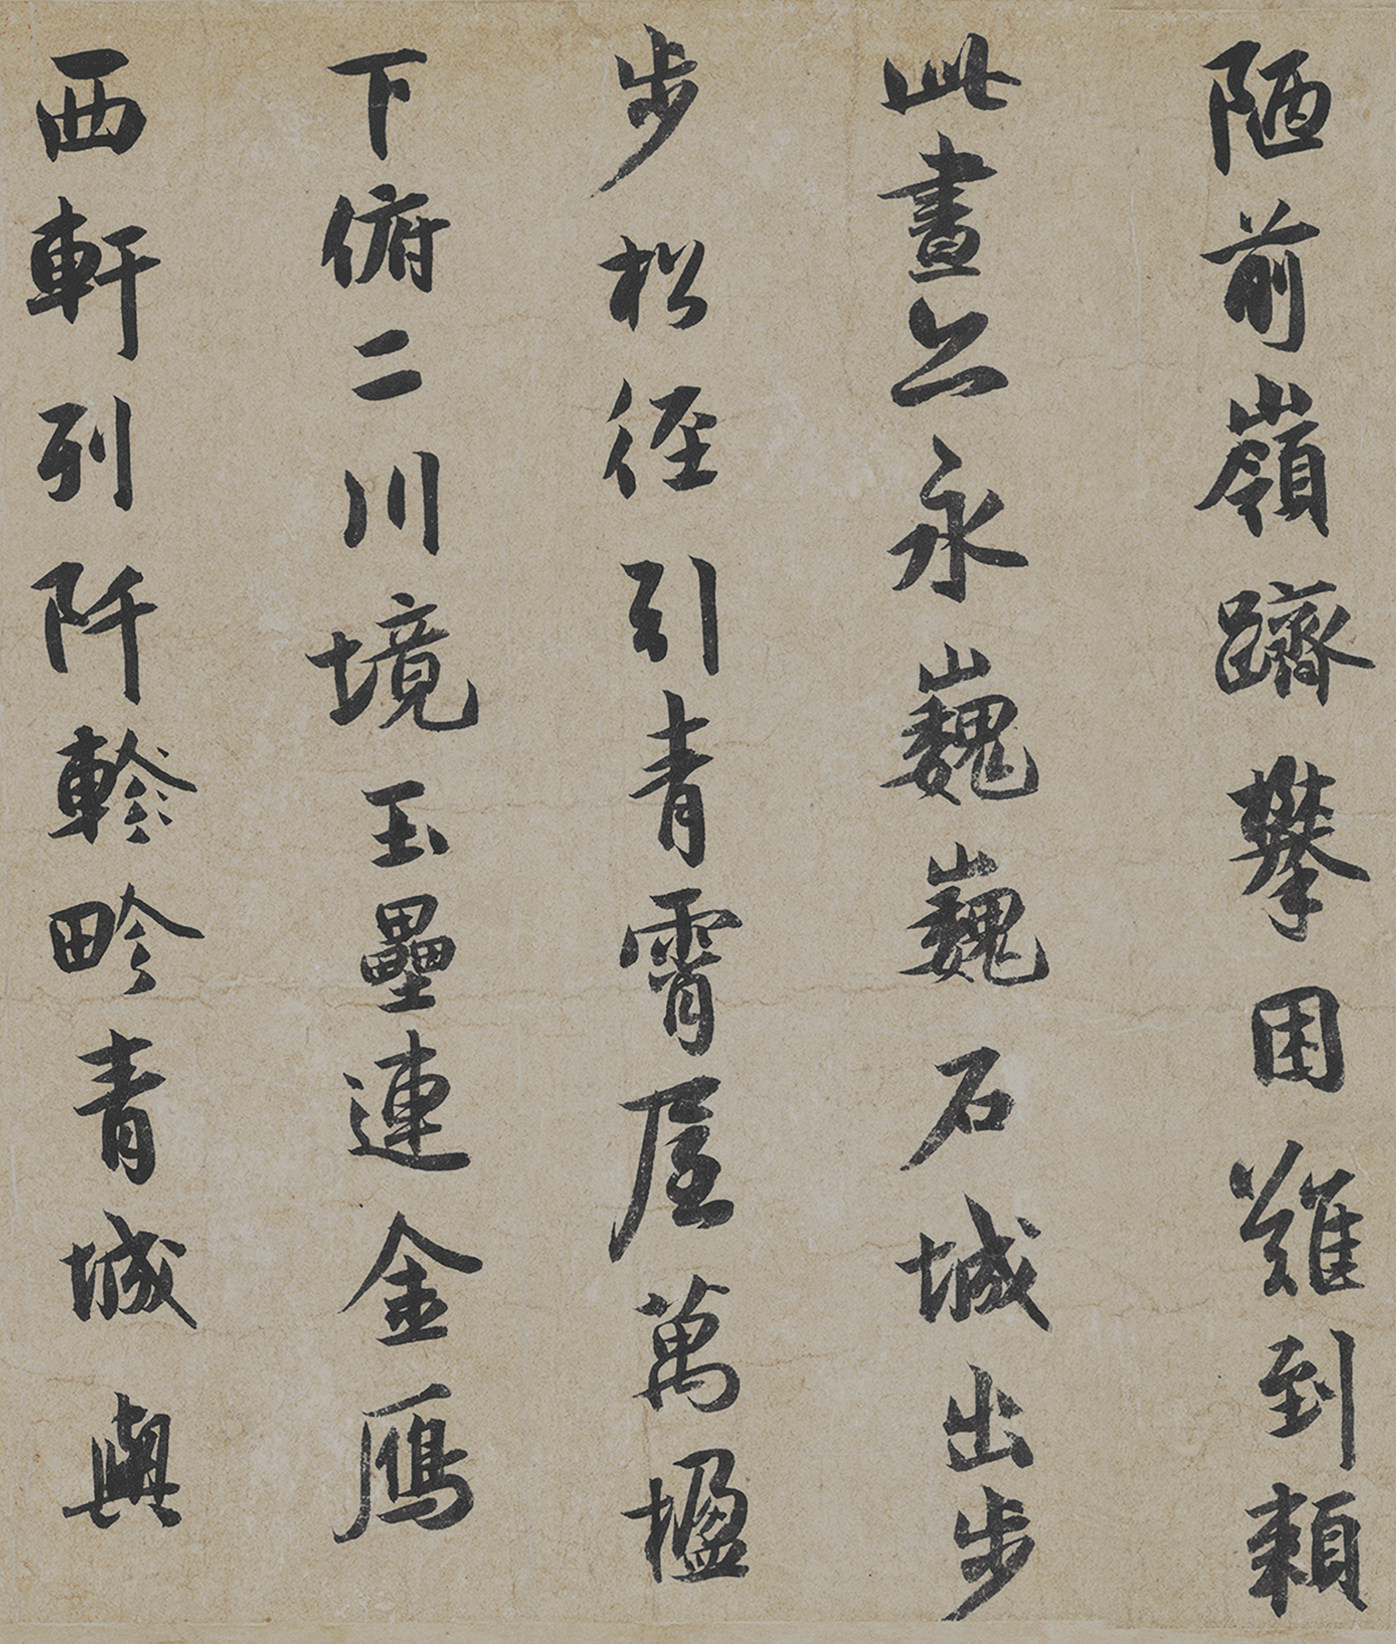 陋前嶺躋攀困難到頼
此晝公永巍巍石城出步
步松徑引青霄屋萬楹
下俯二川境玉壘連金鴈
西軒列阡軫畛青城與